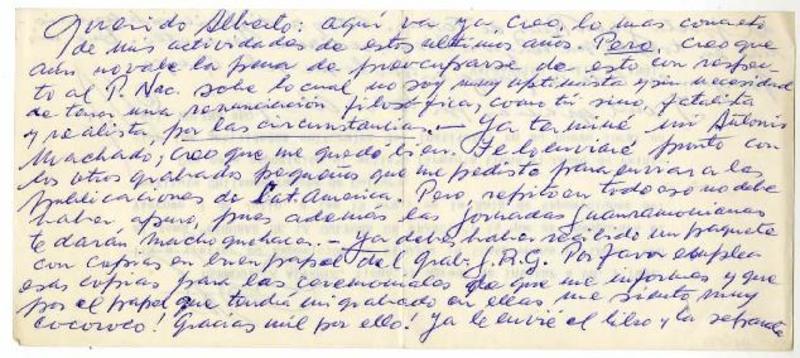 Querido Alberto: aquí va ya, creo, lo mas concreto
de mis actividades de estos ultimos años. Pero, creo que
aún no vale la pena de preocuparse de esto con respec-
to al P. Nac. sobre lo cual no soy muy optimista y sin necesidad
de tener una renunciación filosófica, como tú sino, fatalista
y realista, por las circunstancias. — Ya terminé mi Antonio
Machado; creo que me quedó bien. Te lo enviaré junto con
los otros grabados pequeños que me pediste para enviar a las
publicaciones de Lat. America. Pero, repito en todo eso no debe
haber apuro, pues ademas las jornadas Juanramonianas
te darán mucho quehacer. — Ya debes haber recibido un paquete
con copias en buen papel del grab. J. R. G. Por favor emplea
esas copias para las ceremonias de que me informas y que
por el papel que tendrá mi grabado en ellas me siento muy
cocoroco! Gracias mil por ello! Ya le envié el libro y la separata